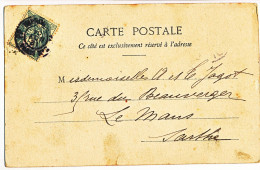 CARTE POSTALE
Ce côté est exclusivement réservé à l'adresse
Mesdemoiselles A et le Jogot
3 rue du Beauverger
Le Mans
Sarthe